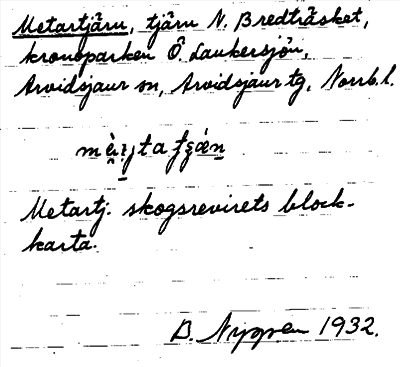 Metartjärn, tjärn N. Bredträsket,
kronoparken Ö. Laukersjön,
Arvidsjaur sn, Arvidsjaur tg, Norrb. l.
Metartj. skogsrevirets block-
karta.
B. Nygren 1932.